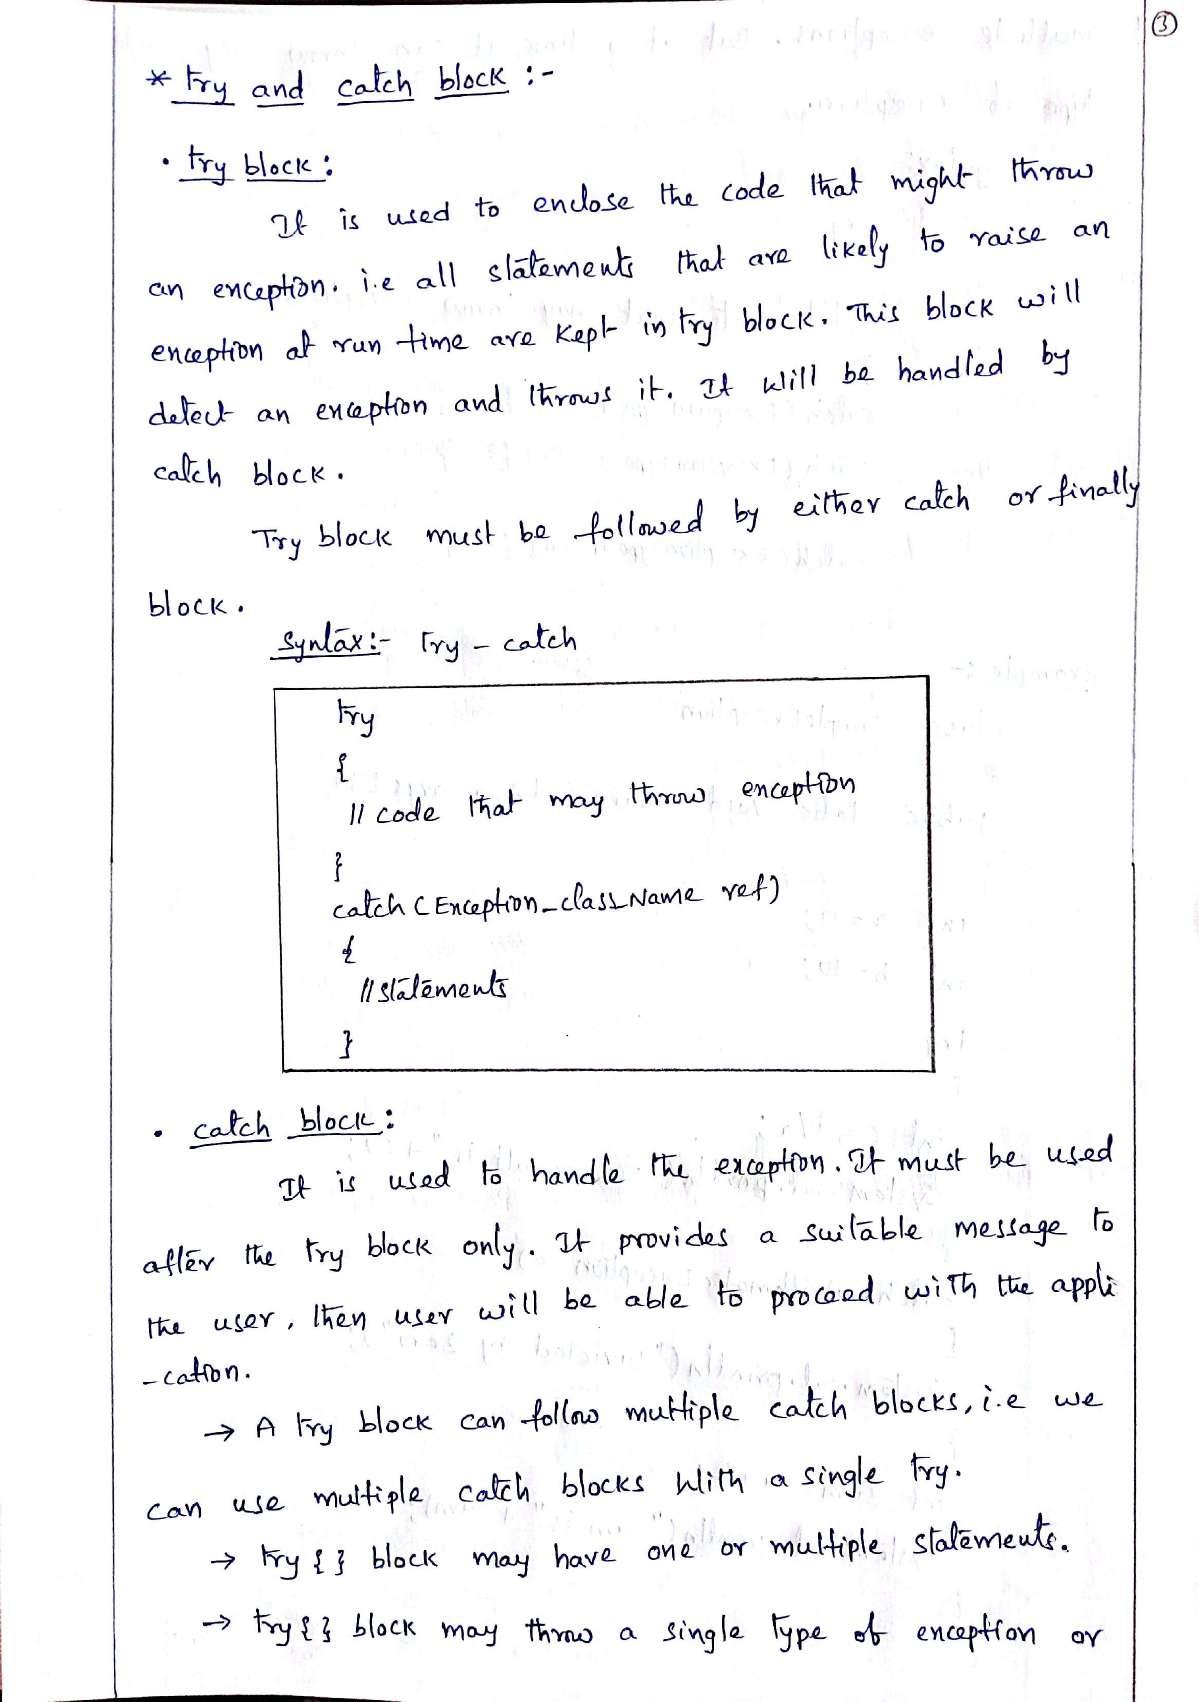 ③
* try and catch block :-
• try block :
It is used to enclose the code that might throw
an exception. i.e all statements that are likely to raise an
exception at run time are kept in try block. This block will
detect an exception and throws it. It will be handled by
catch block.
Try block must be followed by either catch or finally
block.
Syntax :- Try - catch
try
{
// code that may throw exception
}
catch (Exception_class_Name ref)
{
// statements
}
• catch block :
It is used to handle the exception. It must be used
after the try block only. It provides a suitable message to
the user, then user will be able to proceed with the appli
-cation.
→ A try block can follow multiple catch blocks, i.e we
can use multiple catch blocks with a single try.
→ try { } block may have one or multiple statements.
→ try { } block may throw a single type of exception or